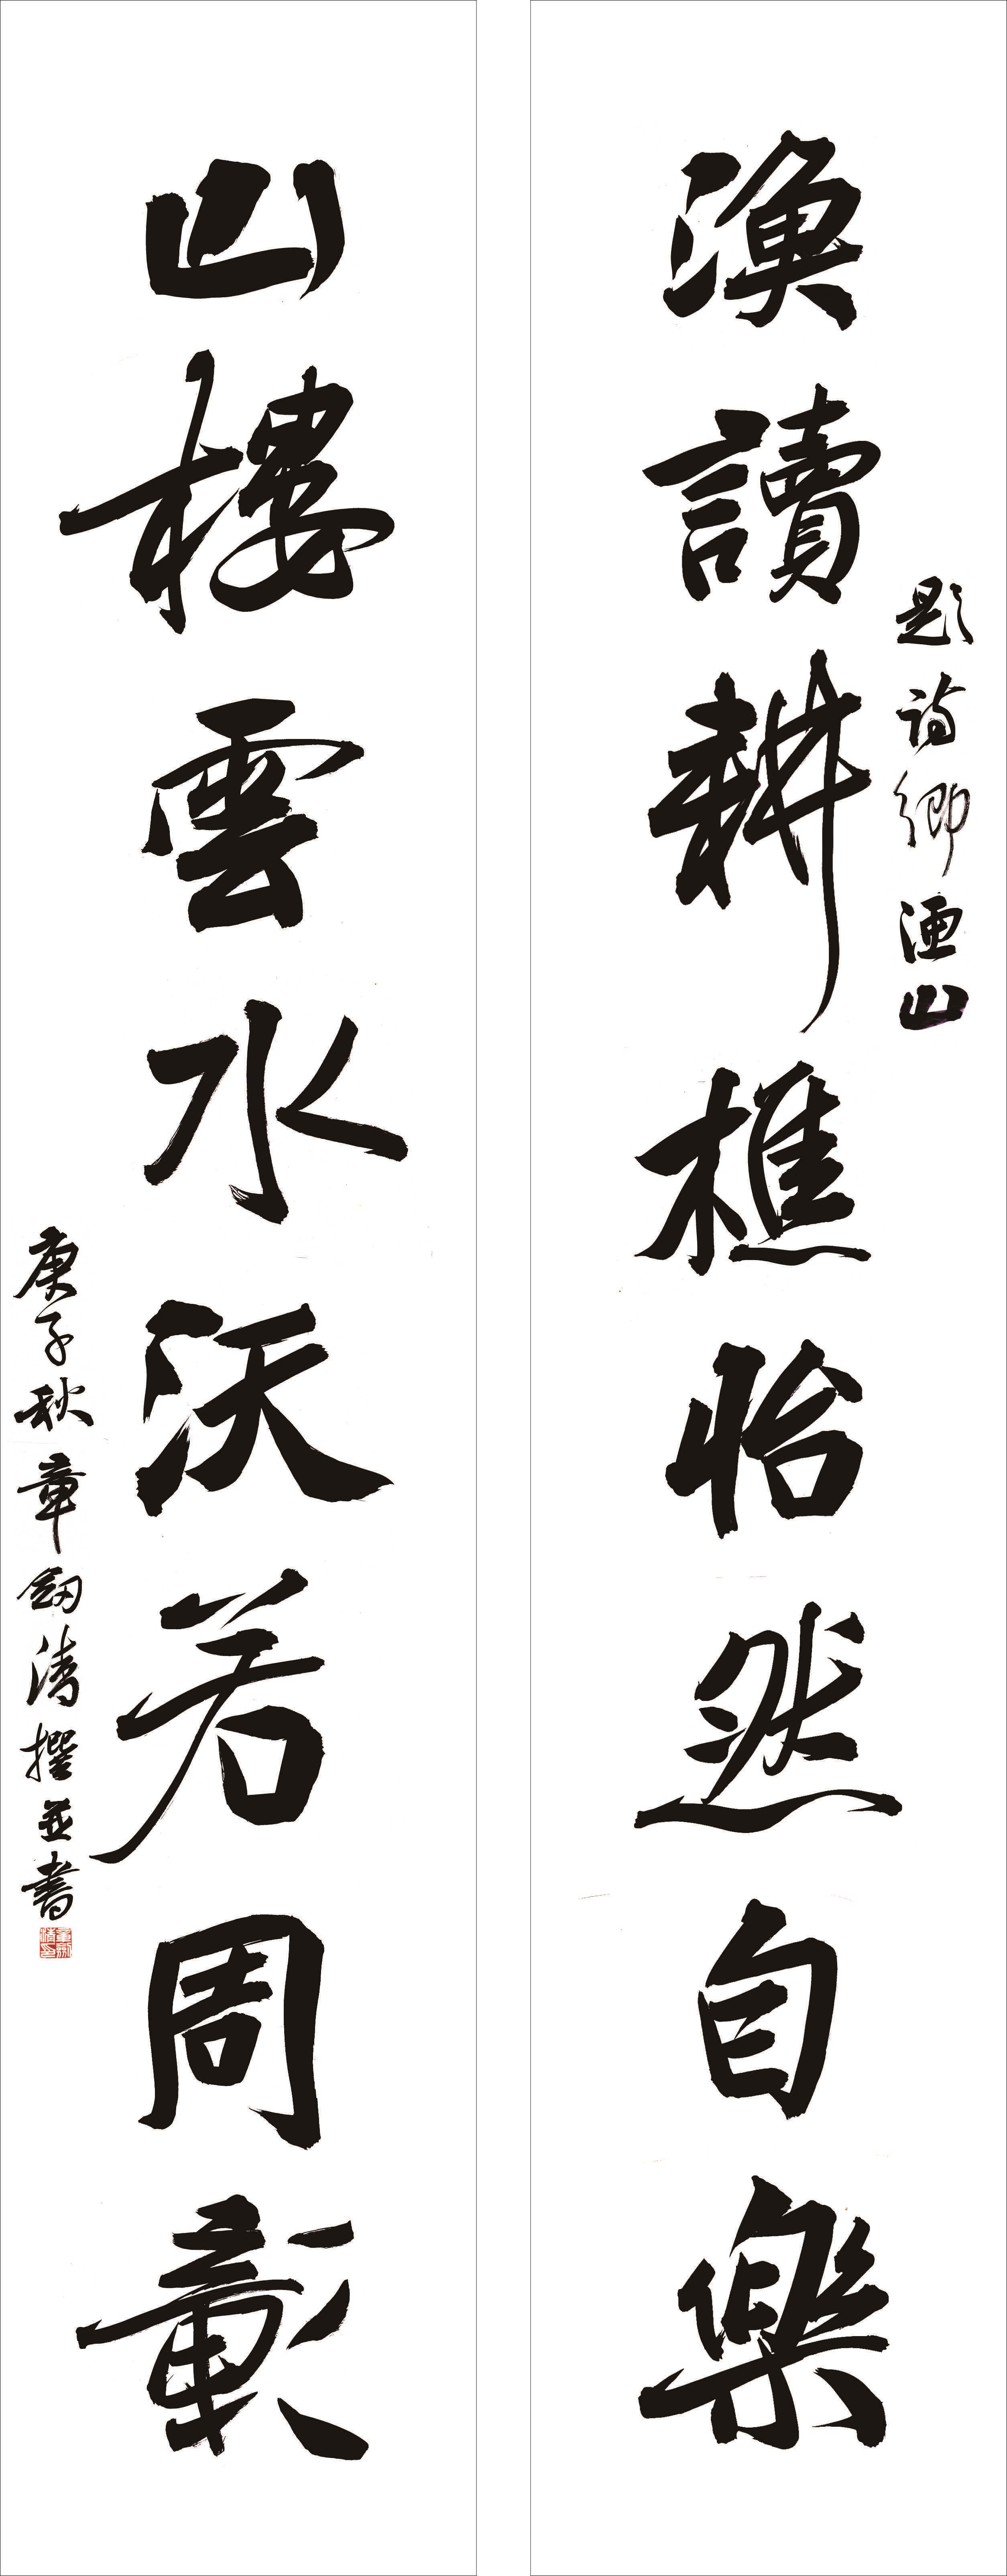 題詩鄉湮山
漁讀耕樵怡然自樂
山樓雲水沃若周彰
庚子秋章劍清撰並書